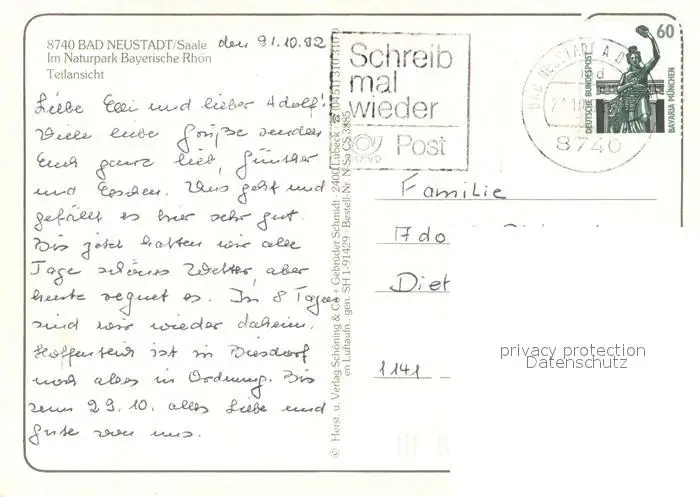 8740 BAD NEUSTADT/Saale
Im Naturpark Bayerische Rhön
Teilansicht
den 21.10.92
Liebe Elli und lieber Adolf!
Viele liebe Grüße senden
Euch ganz lieb, Günther
und Loschen. Uns geht und
gefällt es hier sehr gut.
Bis jetzt hatten wir alle
Tage schönes Wetter, aber
heute regnet es. In 8 Tagen
sind wir wieder daheim.
Hoffentlich ist in Biesdorf
noch alles in Ordnung. Bis
zum 29.10. alles Liebe und
Gute von uns.
© Herst. u. Verlag Schöning & Co + Gebrüder Schmidt · 2400 Lübeck
en Luftaufn., gen. SH 1-91429 Bestell.Nr. N Sa CS 3885
Schreib
mal
wieder
Post
8740
60
DEUTSCHE BUNDESPOST
BAVARIA MÜNCHEN
Familie
Ado
Diet
1141
privacy protection
Datenschutz